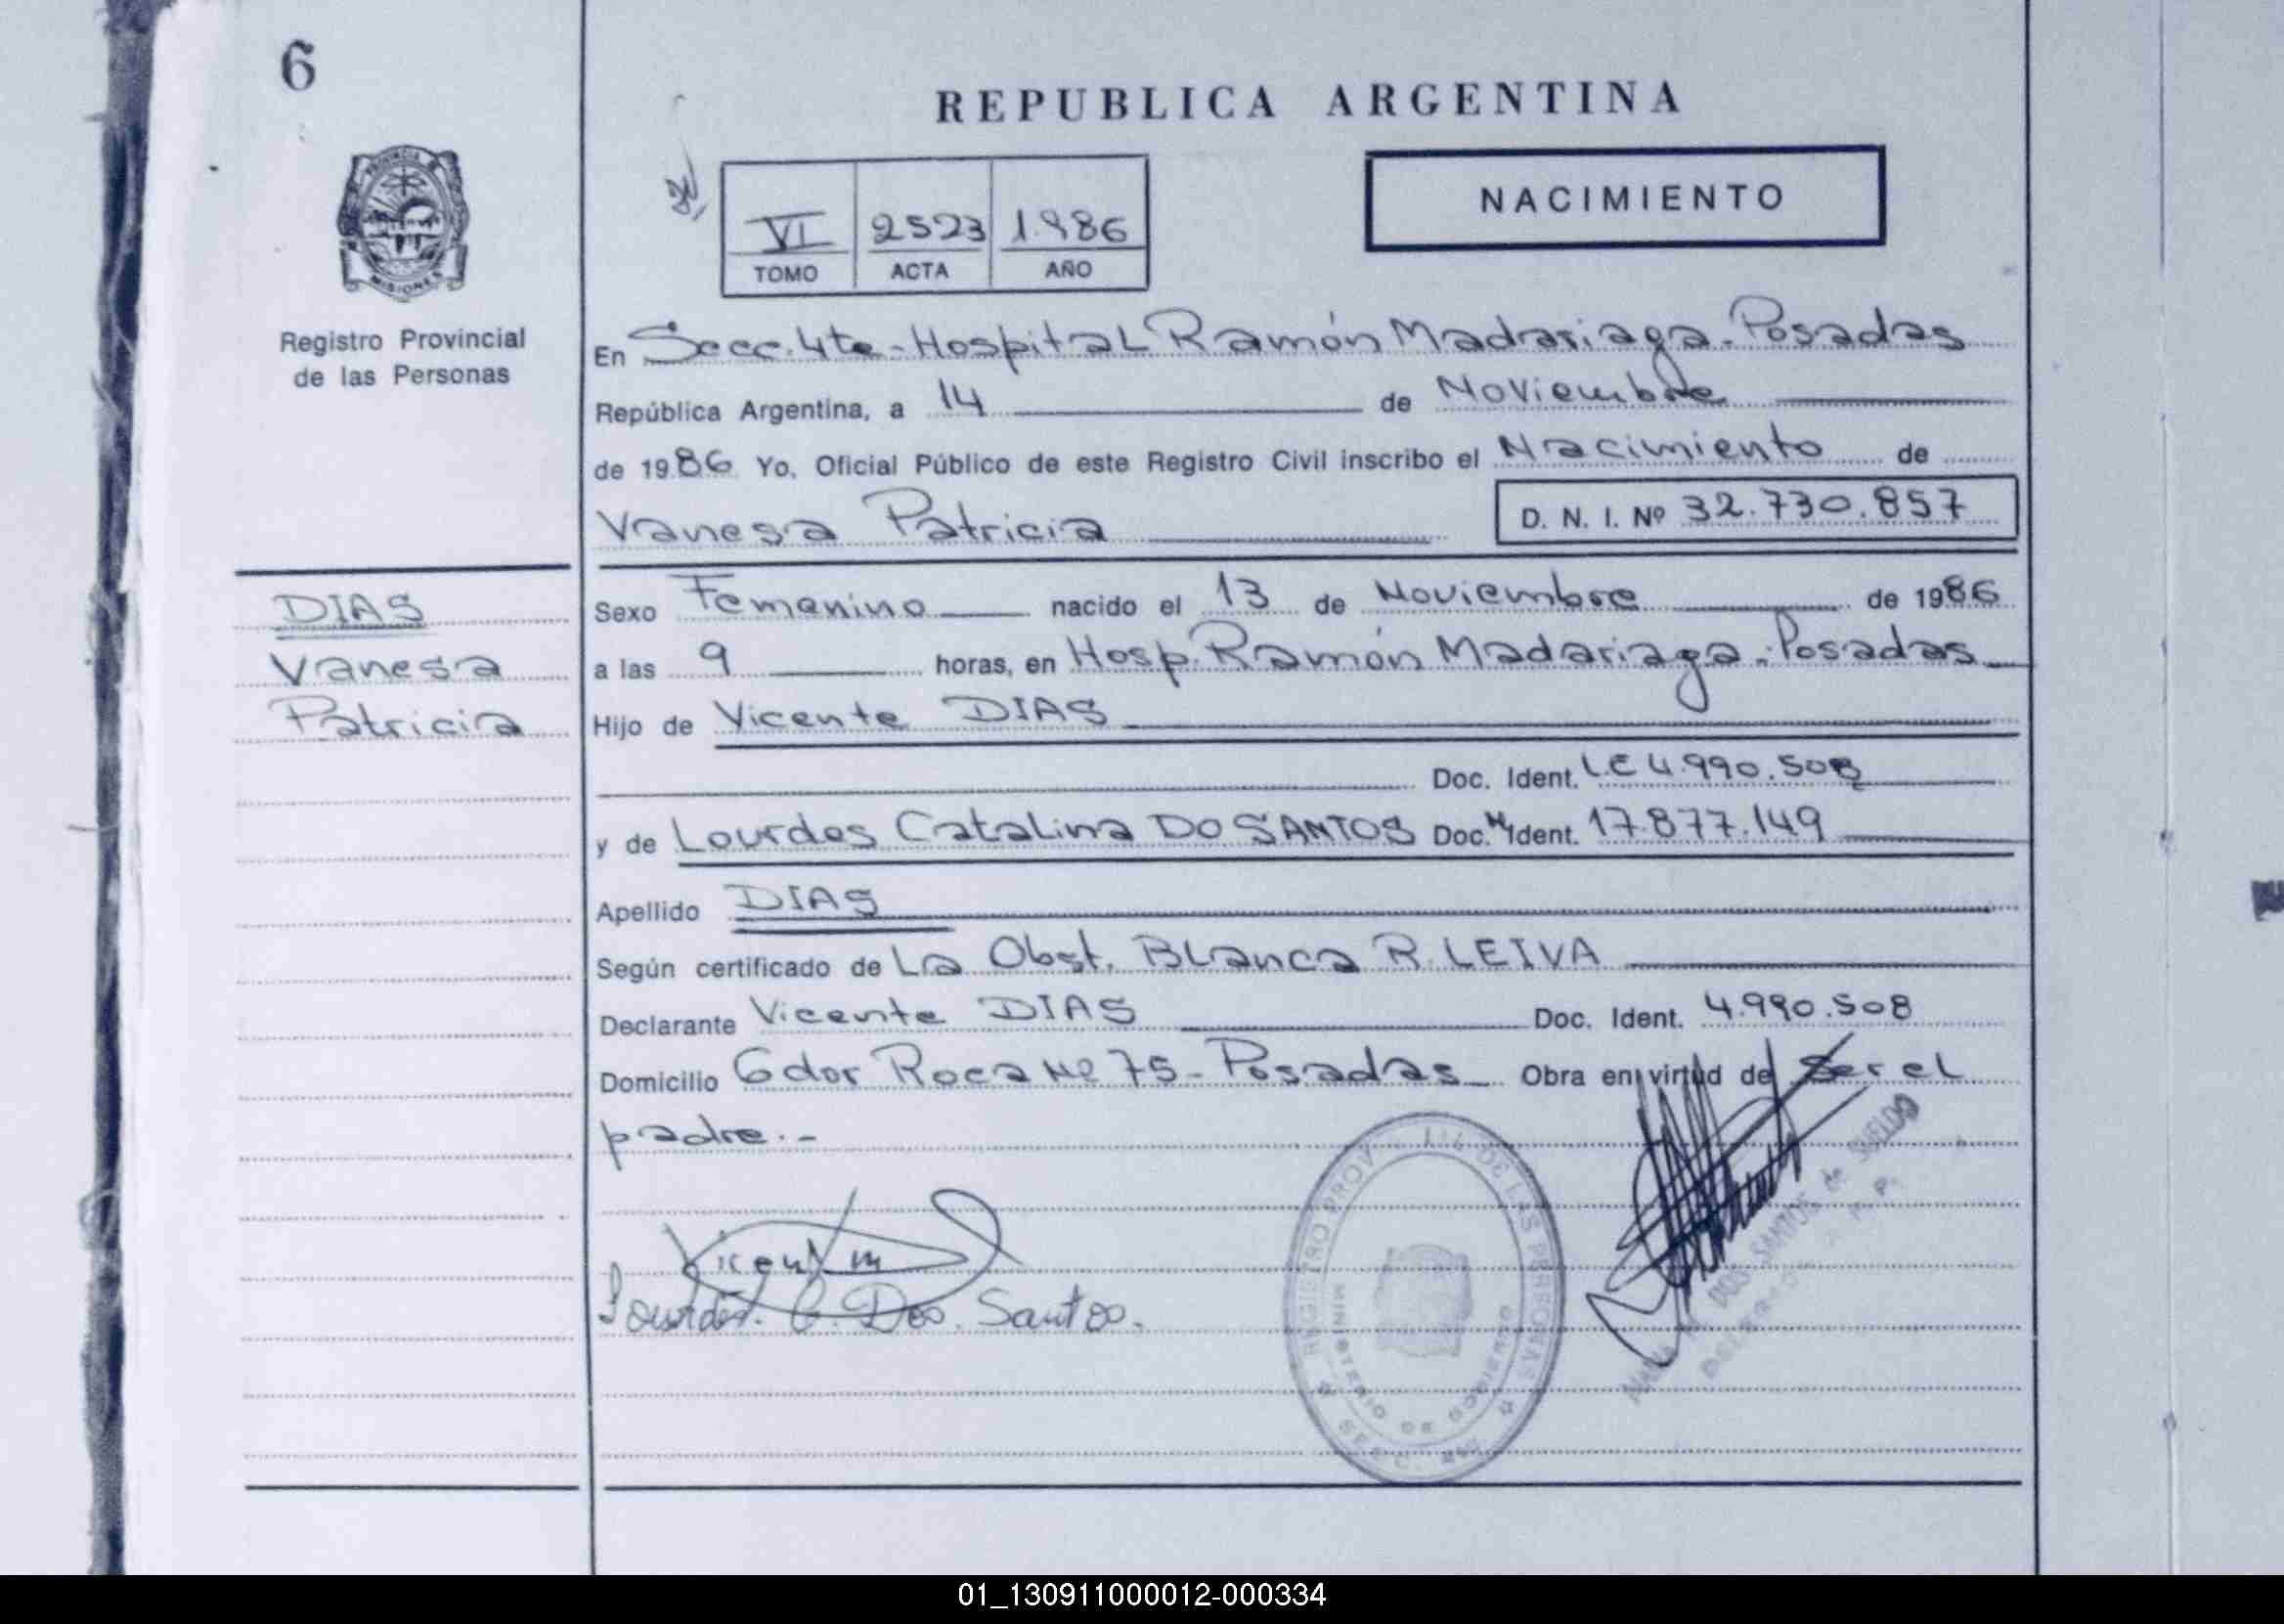 6
REPUBLICA ARGENTINA
NACIMIENTO
VI 2523 1.986
TOMO ACTA AÑO
PROVINCIA DE
MISIONES
Registro Provincial
de las Personas
En Secc. 4ta - Hospital Ramón Madariaga - Posadas
República Argentina, a 14 de Noviembre
de 1986 Yo, Oficial Público de este Registro Civil inscribo el Nacimiento de
Vanesa Patricia D. N. I. Nº 32.730.857
DIAS
Vanesa
Patricia
Sexo Femenino nacido el 13 de Noviembre de 1986
a las 9 horas, en Hosp. Ramón Madariaga - Posadas
Hijo de Vicente DIAS
Doc. Ident. L.E 4.990.508
y de Lourdes Catalina DO SANTOS Doc. Ident. 17.877.149
Apellido DIAS
Según certificado de La Obst. Blanca R. LEIVA
Declarante Vicente DIAS Doc. Ident. 4.990.508
Domicilio Gdor Roca Nº 75 - Posadas Obra en virtud de Ser el
padre.-
Lourdes. C. Dos. Santos.
REGISTRO PROV. DE LAS PERSONAS
MINISTERIO DE GOBIERNO
DOS SANTOS de SUELDO
01_130911000012-000334